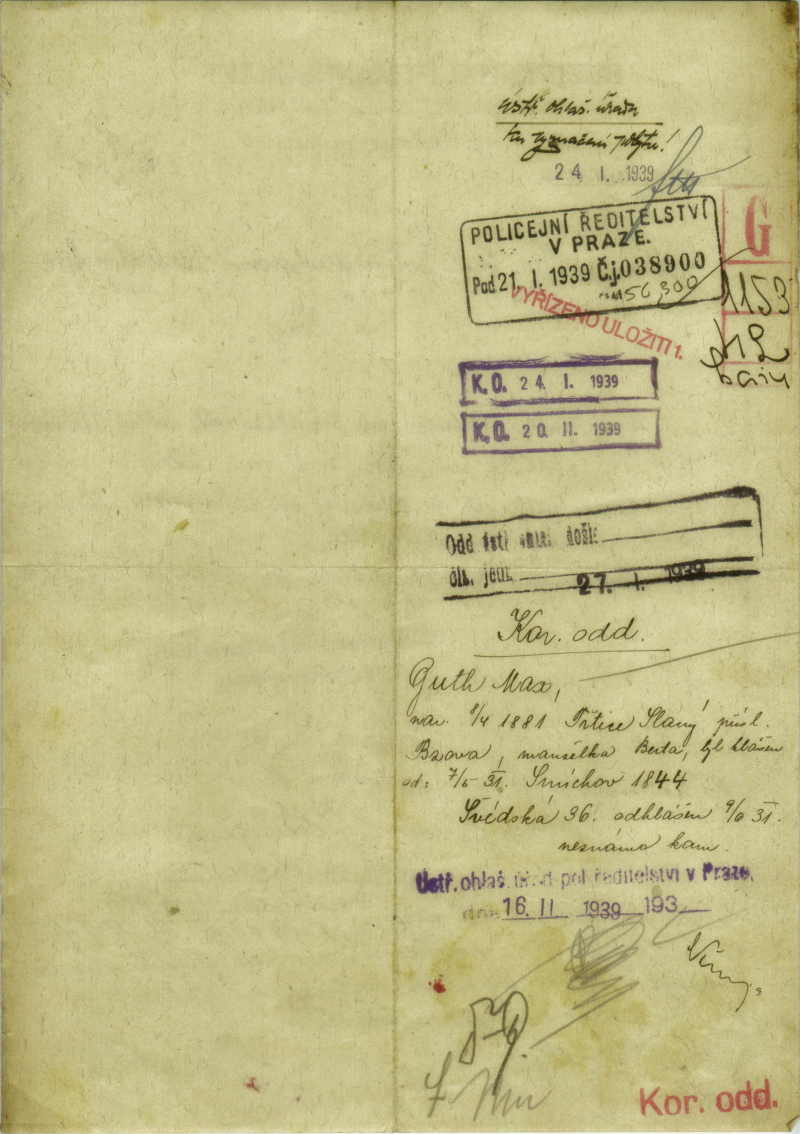 ústř. ohlaš. úřadu
ku vyznačení pobytu!
24 I. 1939
POLICEJNÍ ŘEDITELSTVÍ
V PRAZE.
Pod 21. I. 1939 Č.j. 038900
56,300
G
1153
12
VYŘÍZENO ULOŽITI 1.
K.O. 24. I. 1939
K.O. 20 II. 1939
Odd došlo
čís. jedn.
27. I. 1939
Kor. odd.
Guth Max,
nar. 9/4 1881 Třtice Slaný přísl.
Bzova, manželka Berta, byl hlášen
od: 7/5 31. Smíchov 1844
Švédská 36. odhlášen 9/6 31.
neznámo kam.
Ústř. ohlaš. úřad pol ředitelství v Praze.
dne 16. II 1939 193
Kor. odd.